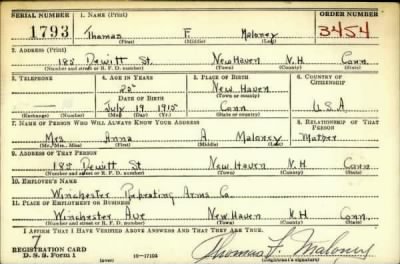 SERIAL NUMBER 1. NAME (Print) ORDER NUMBER
1793 Thomas F. Maloney 3454
(First) (Middle) (Last)
2. ADDRESS (Print)
185 Dewitt St. New Haven N.H. Conn.
(Number and street or R. F. D. number) (Town) (County) (State)
3. TELEPHONE 4. AGE IN YEARS 5. PLACE OF BIRTH 6. COUNTRY OF CITIZENSHIP
25 New Haven
DATE OF BIRTH (Town or county)
July 19 1915 Conn U.S.A
(Exchange) (Number) (Mo.) (Day) (Yr.) (State or country)
7. NAME OF PERSON WHO WILL ALWAYS KNOW YOUR ADDRESS 8. RELATIONSHIP OF THAT PERSON
Mrs. Anna A Maloney Mother
(Mr., Mrs., Miss) (First) (Middle) (Last)
9. ADDRESS OF THAT PERSON
185 Dewitt St New Haven N.H Conn.
(Number and street or R. F. D. number) (Town) (County) (State)
10. EMPLOYER'S NAME
Winchester Repeating Arms Co
11. PLACE OF EMPLOYMENT OR BUSINESS
Winchester Ave New Haven N.H Conn.
(Number and street or R. F. D. number) (Town) (County) (State)
I AFFIRM THAT I HAVE VERIFIED ABOVE ANSWERS AND THAT THEY ARE TRUE.
REGISTRATION CARD
D. S. S. Form 1 (over) 16—17105 Thomas F. Maloney
(Registrant's signature)